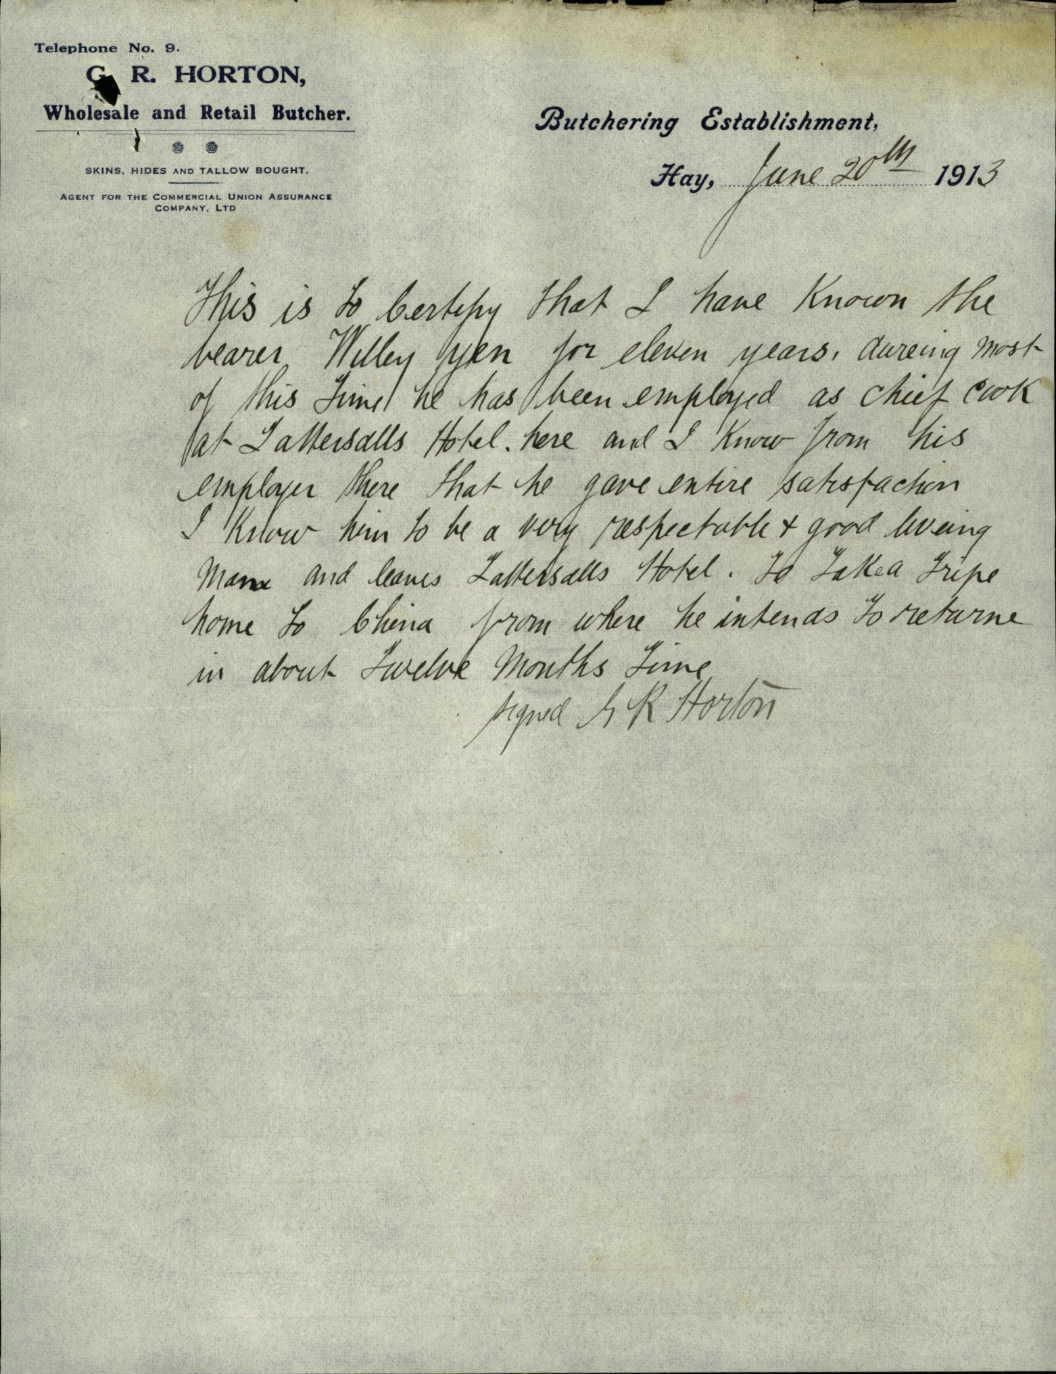 Telephone No. 9.
G. R. HORTON,
Wholesale and Retail Butcher.
SKINS, HIDES AND TALLOW BOUGHT.
AGENT FOR THE COMMERCIAL UNION ASSURANCE
COMPANY, LTD
Butchering Establishment,
Hay, June 20th 1913
This is to Certify that I have Known the
bearer Willey yen for eleven years, dureing most
of this Time he has been employed as chief Cook
at Tattersalls Hotel. here and I Know from his
employer there that he gave entire satisfaction
I Know him to be a very respectable & good liveing
Mane and leaves Tattersalls Hotel. To Take a Tripe
home to China from where he intends To returne
in about Twelve Months Time
signed G R Horton